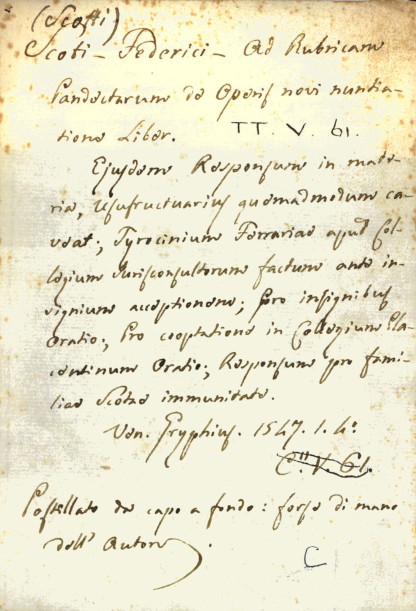 (Scotti)
Scoti - Federici - Ad Rubricam
Pandectarum de Operis novi nuntia-
tione Liber. TT. V. 61.
Ejusdem Responsum in mate-
ria, Usufructuarius quemadmodum ca-
veat; Tyrocinium Ferrariae apud Col-
legium Jurisconsultorum factum ante in-
signium acceptionem; pro insignibus
Oratio; Pro cooptatione in Collegium Pla-
centinum Oratio; Responsum pro fami-
liae Scotae immunitate.
Ven. Gryphius. 1547. 1. 4º
C. V. 61.
Postellato da capo a fondo: forse di mano
dell' Autore.
C